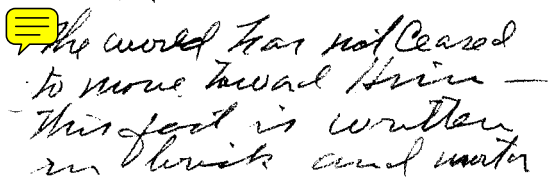 The world has not Ceased
to move toward Him —
this fact is written
in brick and mortar